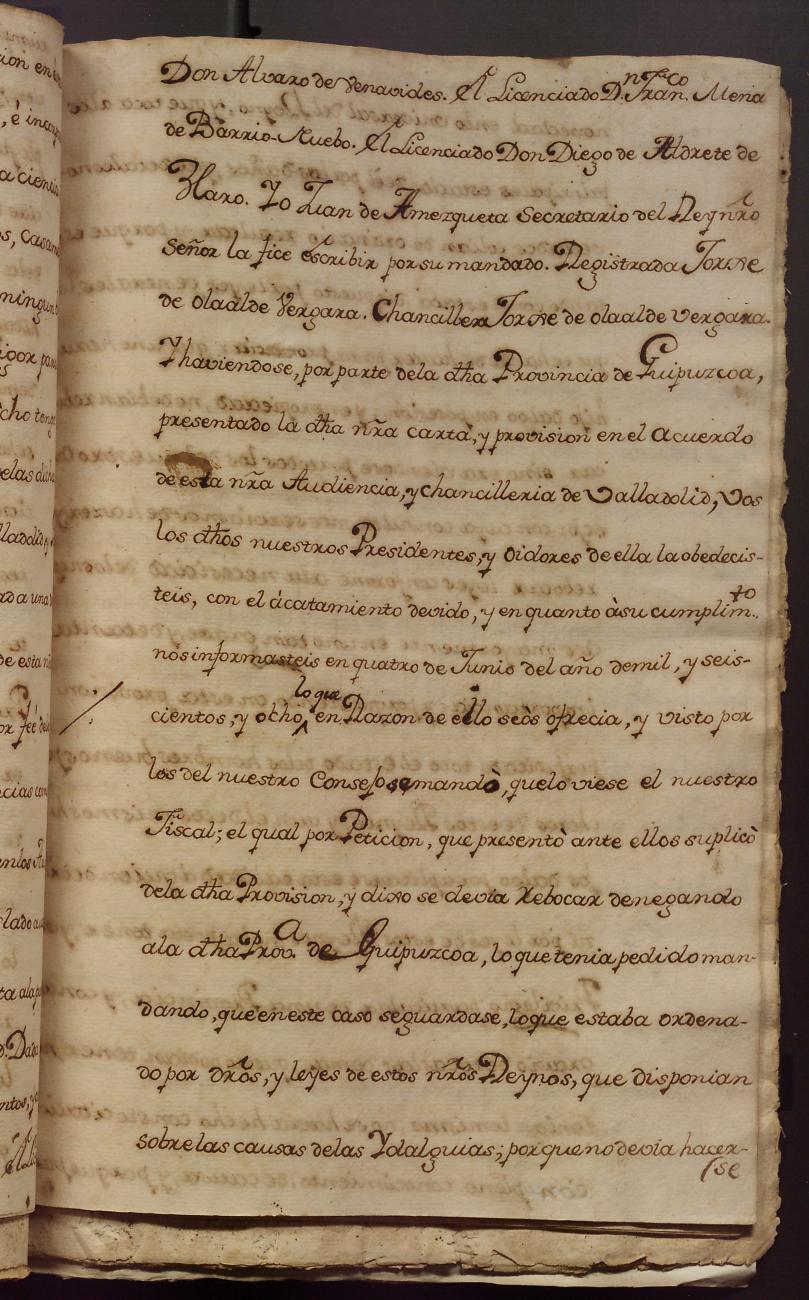 Don Alvaro de Venavides. El Licenciado D.n Fran.co Mena
de Barrio-Nuebo. El Licenciado Don Diego de Aldrete de
Haro. Yo Juan de Amezqueta Secretario del Rey nr̃o
Señor la fice escribir por su mandado. Registrada Jorxe
de olaalde Vergara. Chanciller Jorxe de olaalde vergara.
Y haviendose, por parte dela dha Provincia de Guipuzcoa,
presentado la dha nr̃a carta, y provision en el acuerdo
de esta nr̃a Audiencia, y chancilleria de Valladolid, Vos
los dhos nuestros Presidentes, y oidores de ella la obedecis-
teis, con el ácatamiento devido, y en quanto àsu cumplim.to
nos informasteis en quatro de Junio del año demil, y seis-
cientos, y ocho, lo que en Razon de ello seòs ofrecia, y visto por
los del nuestro Consejo se mandò, quelo viese el nuestro
Fiscal; el qual por Peticion, que presentò ante ellos suplicò
dela dha Provision, y dixo se devia Rebocar denegando
ala dha Prov.a de Guipuzcoa, lo que tenia pedido man-
dando, que en este caso seguardase, loque estaba ordena-
do por dr̃os, y leyes de estos nr̃os Reynos, que disponian
sobre las causas delas Ydalguias; porque no devia hacer-
(se